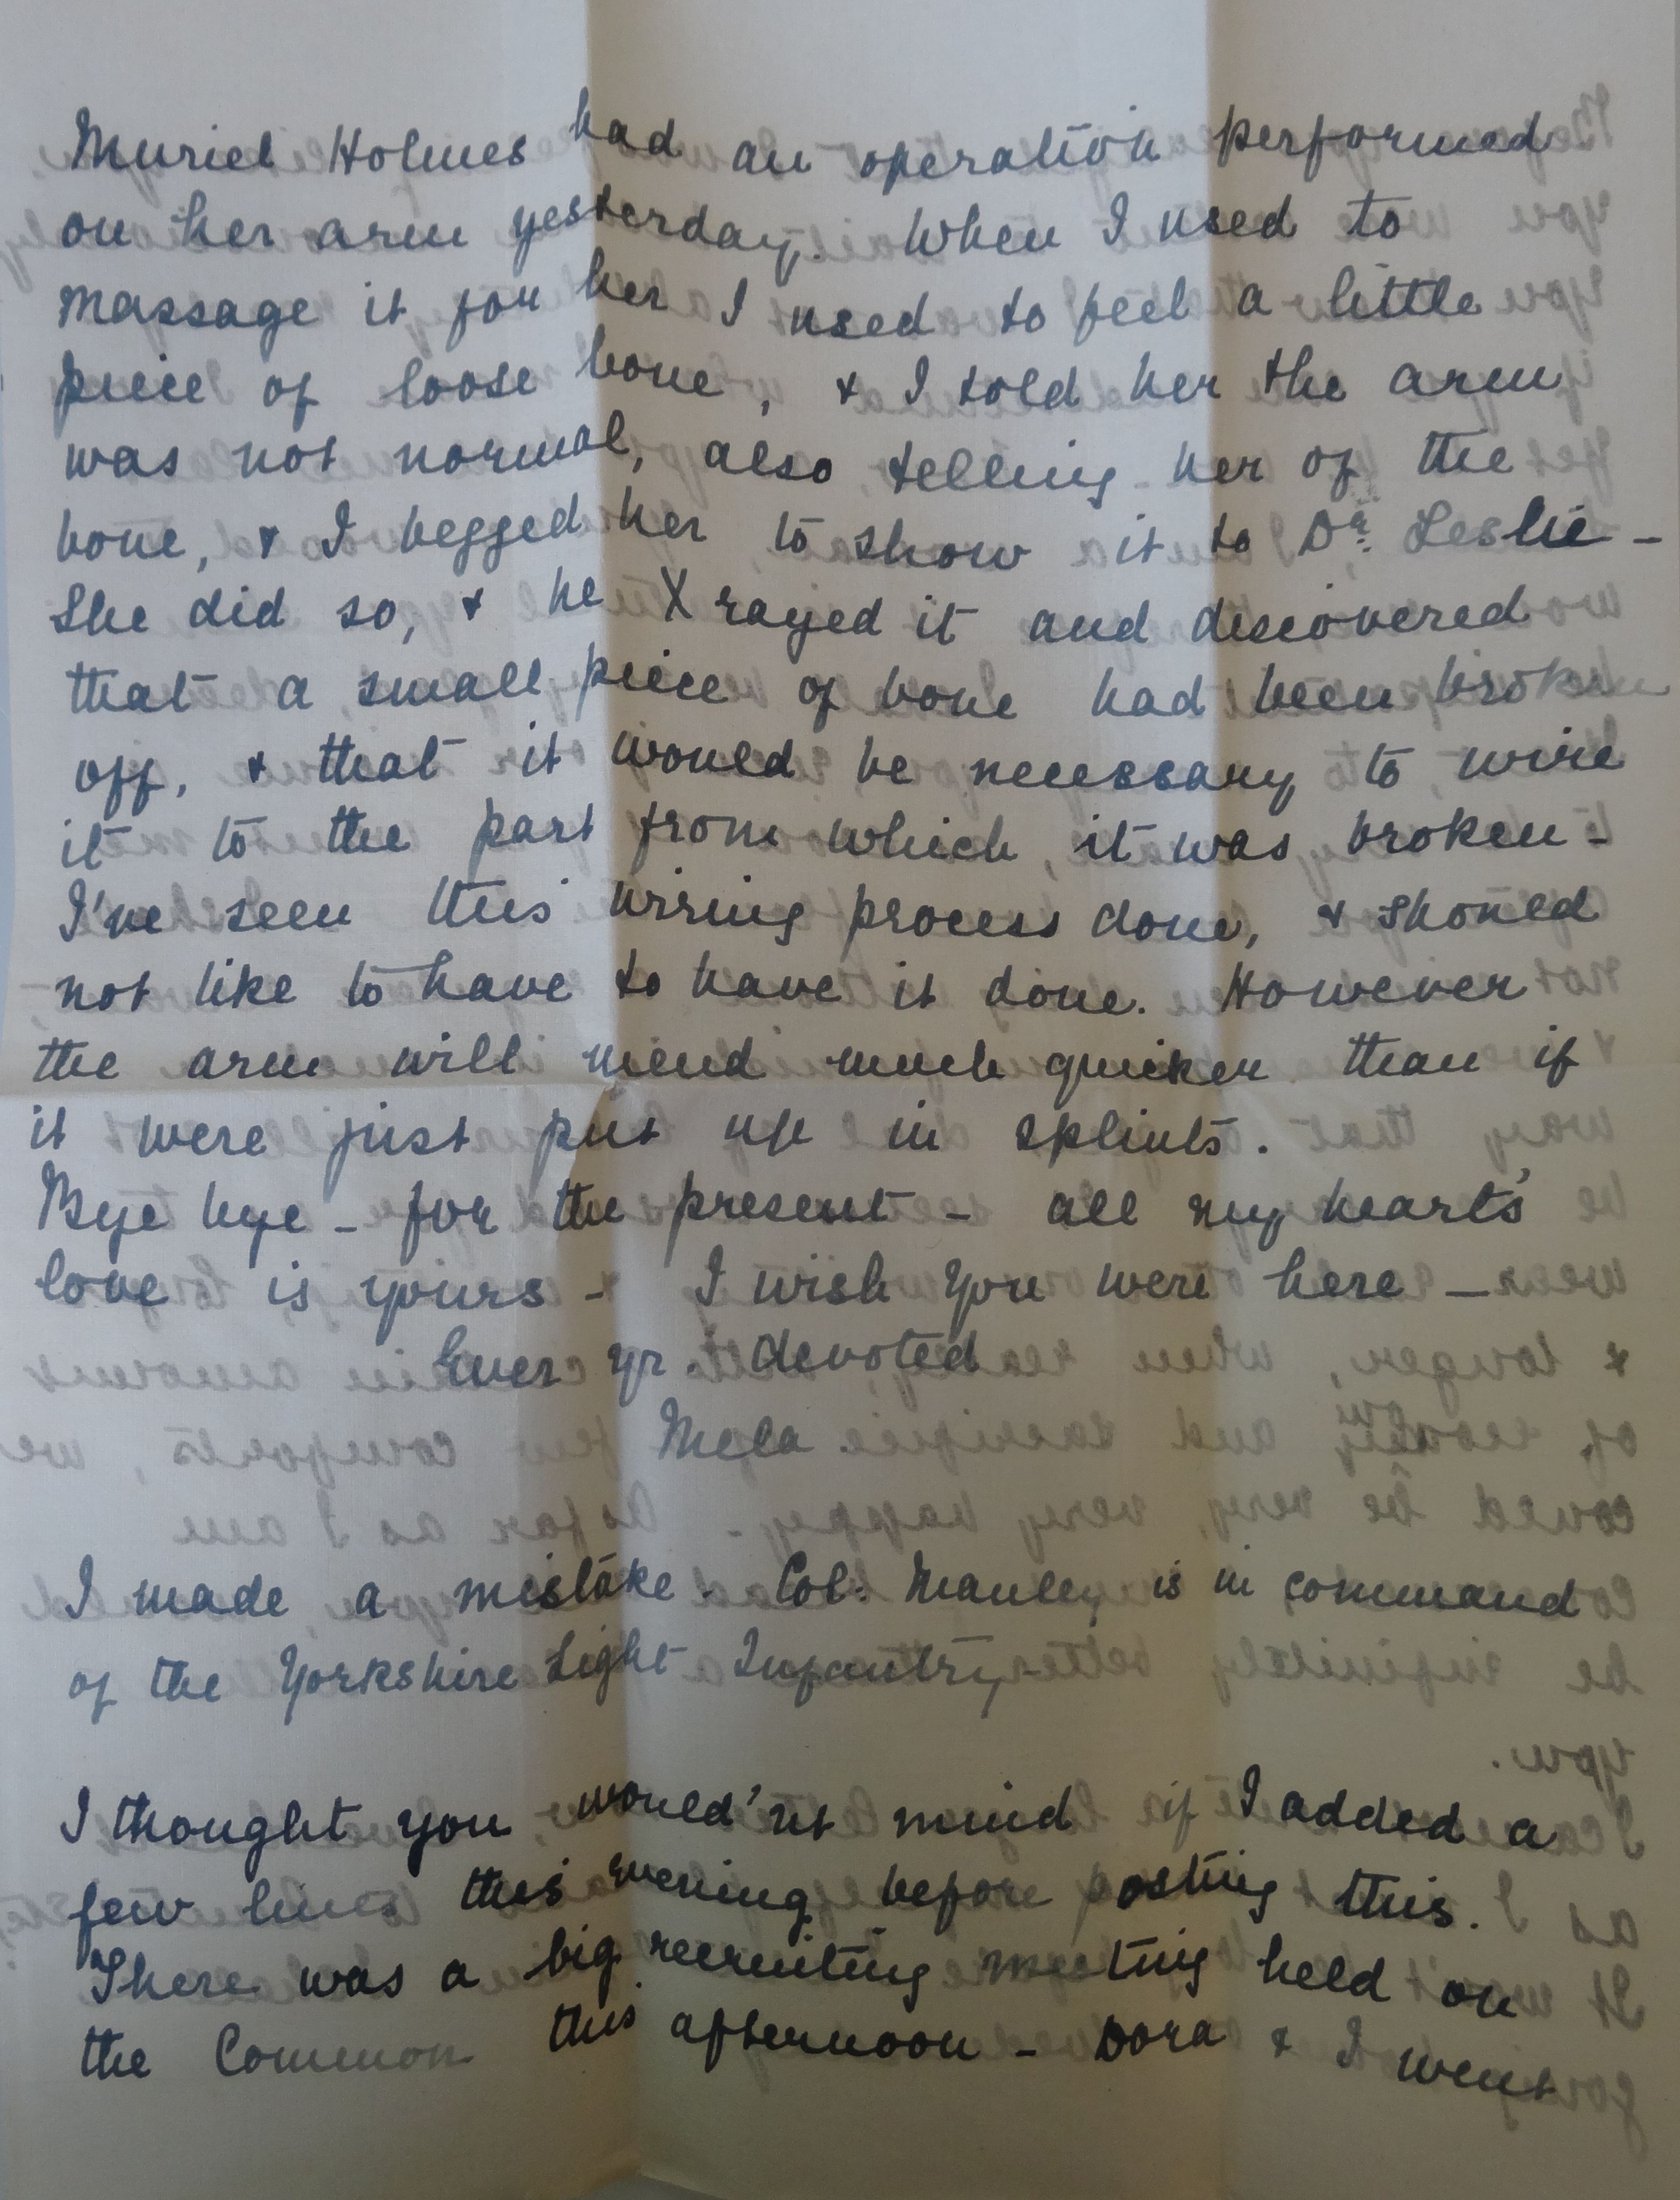 Muriel Holmes had an operation performed
on her arm yesterday. When I used to
massage it for her I used to feel a little
piece of loose bone, & I told her the arm
was not normal, also telling her of the
bone, & I begged her to show it to Dr. Leslie -
She did so, & he X rayed it and discovered
that a small piece of bone had been broken
off, & that it would be necessary to wire
it to the part from which it was broken -
I've seen this wiring process done, & should
not like to have to have it done. However
the arm will mend much quicker than if
it were just put up in splints.
Bye bye - for the present - all my heart's
love is yours - I wish you were here -
Ever yr. devoted
Mela
I made a mistake - Col: Manley is in command
of the Yorkshire Light Infantry -
I thought you would'nt mind if I added a
few lines this evening before posting this.
There was a big recruiting meeting held on
the Common this afternoon - Dora & I went